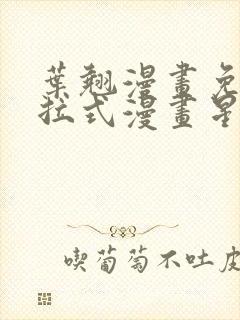 葉翹漫畫免
拉式漫畫星
喫葡萄不吐皮